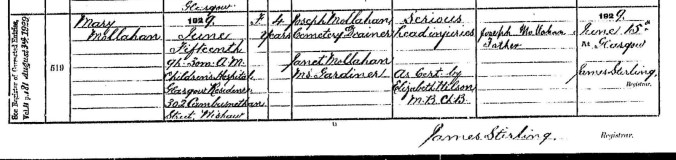 Glasgow
See Register of Corrected Entries,
Vol. August 3rd 1929
519
Mary
Mollahan
1929.
June
Fifteenth
9h. 30m. A.M.
Children's Hospital
Glasgow Residence
302 Cambusnethan
Street Wishaw
F
4
years
Joseph Mollahan
Cemetery Drainer
Janet Mollahan
M.S. Gardiner
Serious
head injuries
As Cert. by
Elizabeth Wilson
M.B. Ch.B.
Joseph Mollahan
Father
1929.
June 15th
At Glasgow
James Stirling.
Registrar.
James Stirling. Registrar.